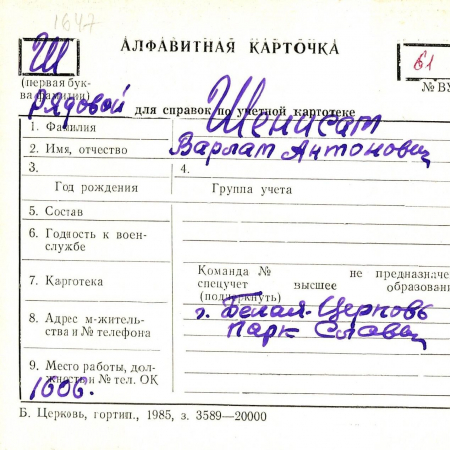 1647
АЛФАВИТНАЯ КАРТОЧКА
Ш
61
(первая бук-
ва фамилии)
№ ВУ
Рядовой
для справок по учетной картотеке
1. Фамилия
Шенисат
2. Имя, отчество
Варлат Антонович
3.
4.
Год рождения
Группа учета
5. Состав
6. Годность к воен-
службе
7. Картотека
Команда № не предназначе
спецучет высшее образовани
(подчеркнуть)
8. Адрес м-житель-
ства и № телефона
г. Белая-Церковь
Парк Славы
9. Место работы, дол-
жность и № тел. ОК
1606.
Б. Церковь, гортип., 1985, з. 3589—20000